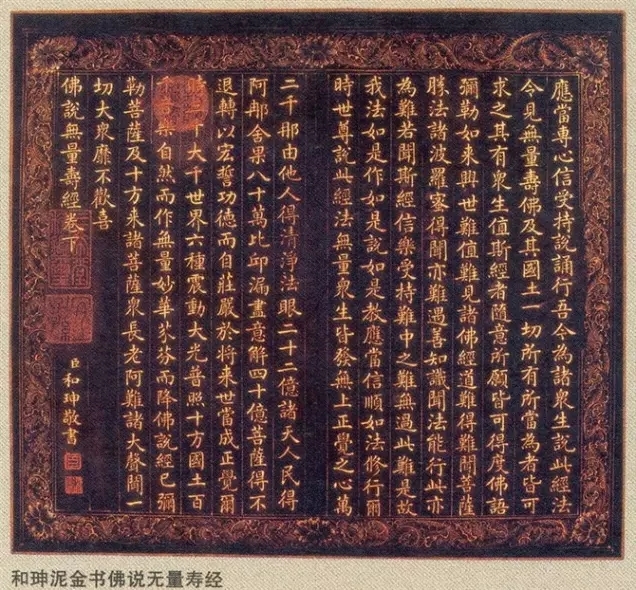 應當專心信受持說誦行吾今為諸衆生說此經法
令見無量壽佛及其國土一切所有所當為者皆可
求之其有衆生值斯經者隨意所願皆可得度佛語
彌勒如來興世難值難見諸佛經道難得難聞菩薩
勝法諸波羅蜜得聞亦難遇善知識聞法能行此亦
為難若聞斯經信樂受持難中之難無過此難是故
我法如是作如是說如是教應當信順如法修行爾
時世尊說此經法無量衆生皆發無上正覺之心萬
二千那由他人得清淨法眼二十二億諸天人民得
阿那含果八十萬比邱漏盡意解四十億菩薩得不
退轉以宏誓功德而自莊嚴於將來世當成正覺爾
時三千大千世界六種震動大光普照十方國土百
千音樂自然而作無量妙華芬芬而降佛說經已彌
勒菩薩及十方來諸菩薩衆長老阿難諸大聲聞一
切大衆靡不歡喜
佛說無量壽經卷下
臣和珅敬書
和珅泥金书佛说无量寿经